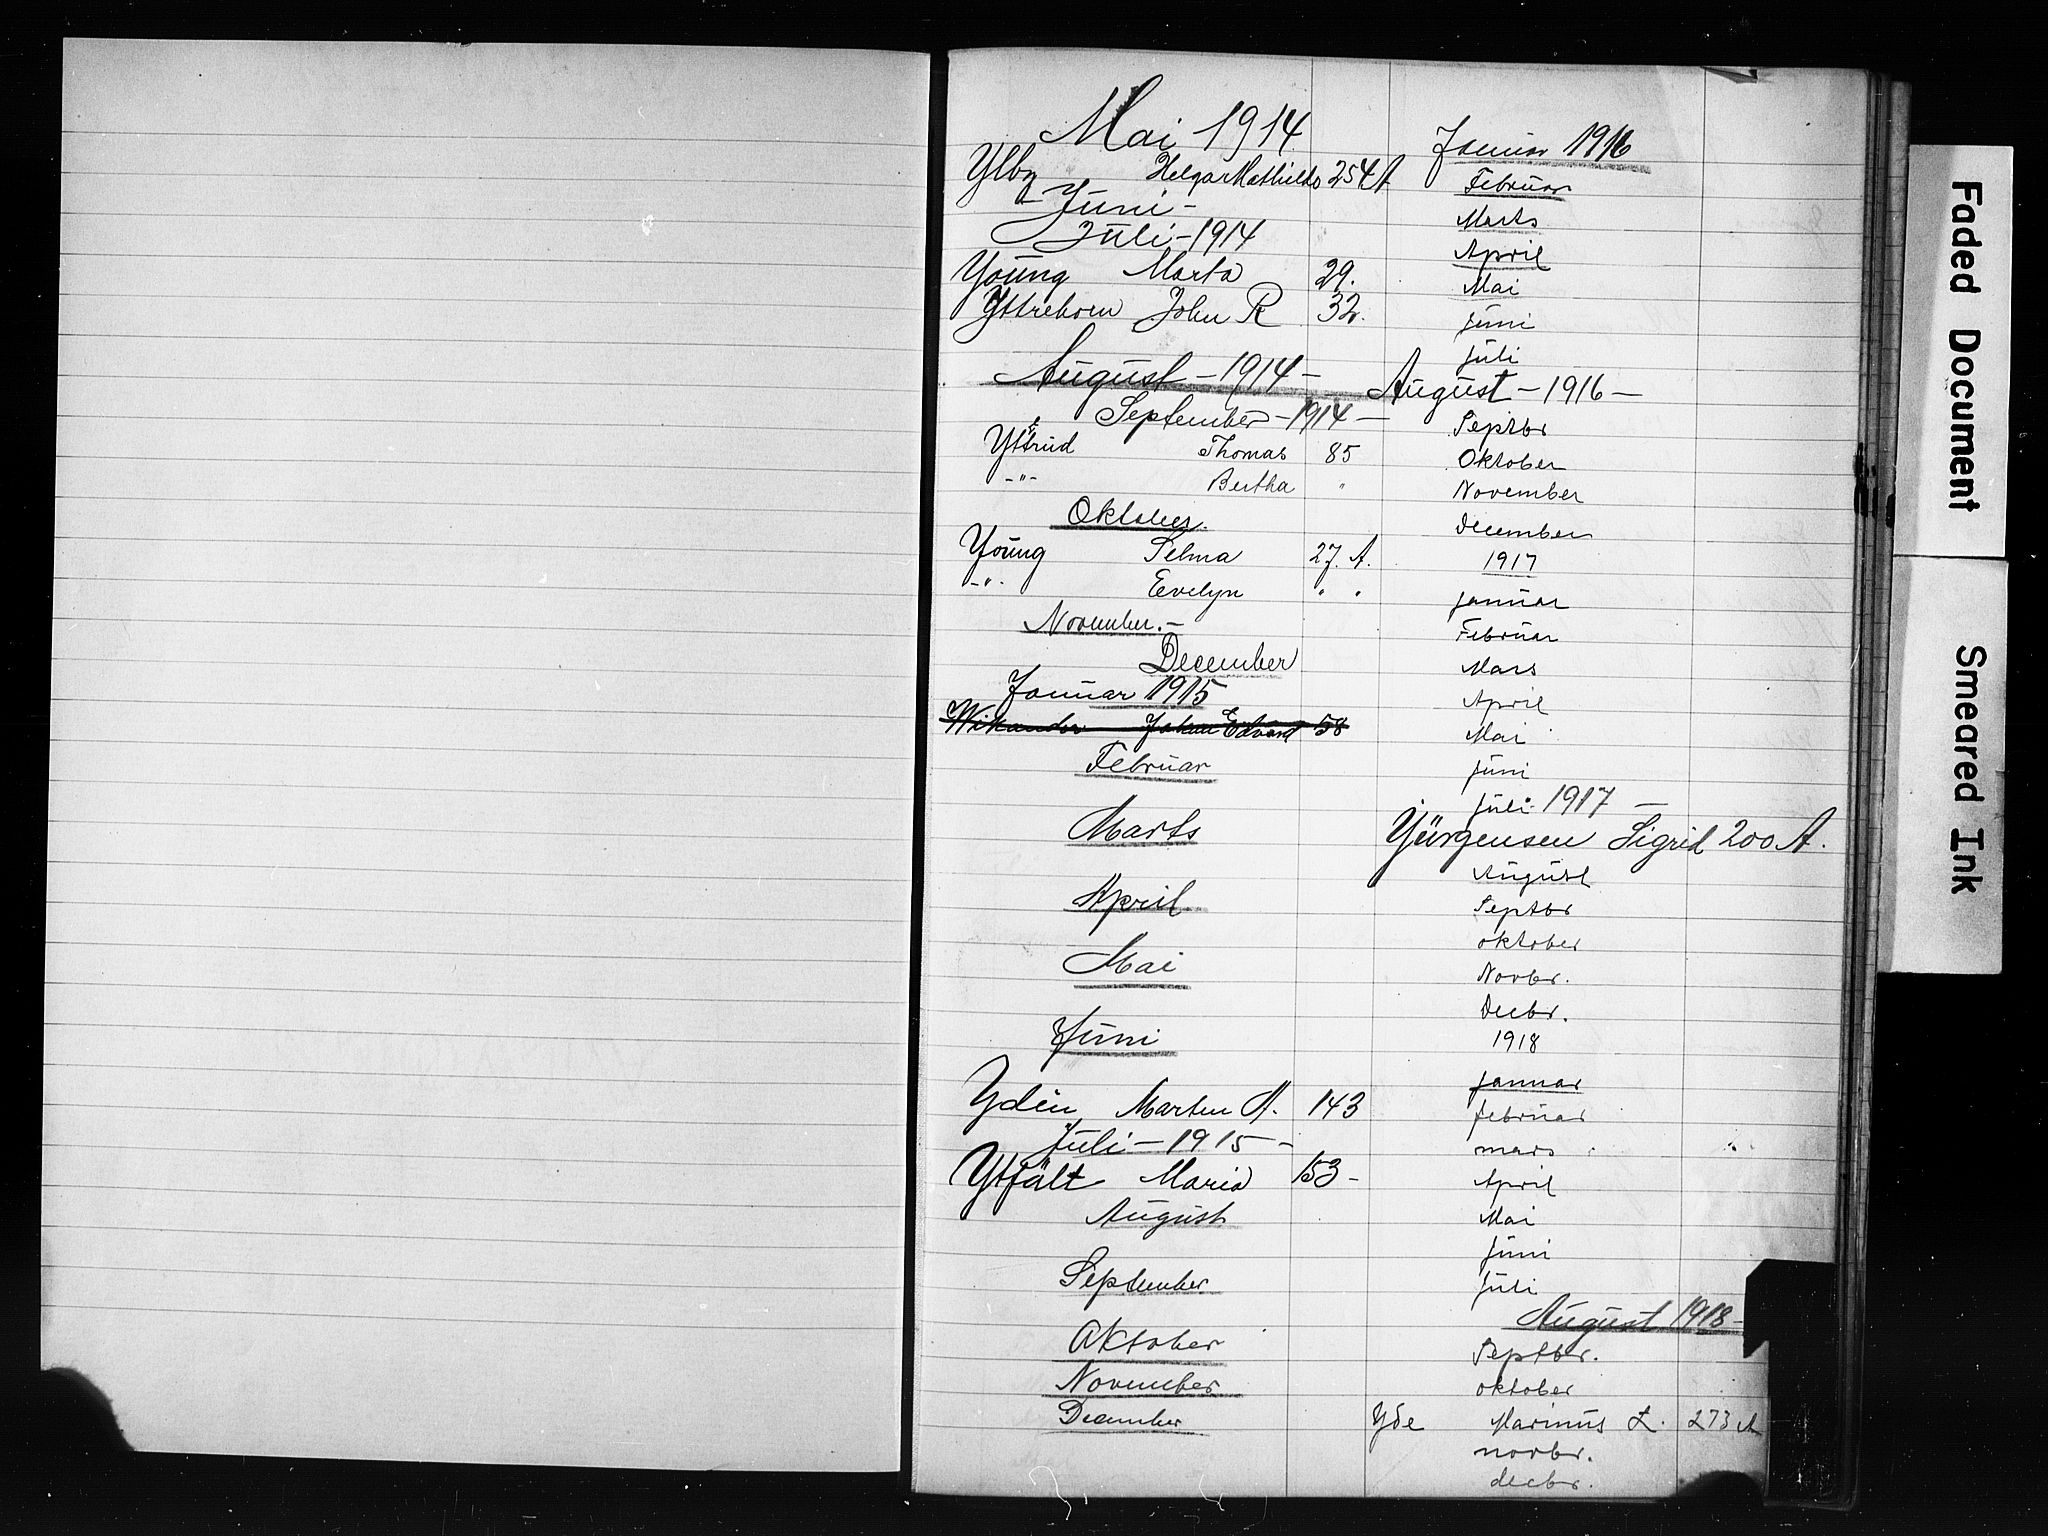 Mai 1914
Ylby Helga Mathilda 254 A
- Juni -
Juli - 1914
Young Marta 29.
Yttreborn John R 32.
August - 1914 -
September - 1914 -
Yttrud Thomas 85
-"- Bertha "
Oktober.
Young Selma 27. A.
-"- Eevelyn " "
November. -
December
Januar 1915
Wikander Johan Edvard 58
Februar
Marts
April
Mai
Juni
Yden Marten A. 143
Juli - 1915 -
Ytfält Maria 153 -
August
September
Oktober
November
December
Januar 1916
Februar
Marts
April
Mai
Juni
Juli
August - 1916 -
Septbr
Oktober
November
December
1917
Januar
Februar
Mars
April
Mai
Juni
Juli 1917 -
Yürgensen Sigrid 200 A.
August
Septbr
oktober
Novbr.
Decbr.
1918
Januar
februar
mars
April
Mai
Juni
Juli
August 1918 -
Septbr.
oktober
Yde Marinus L. 273 A
novbr.
decbr.
Faded Document
Smeared Ink